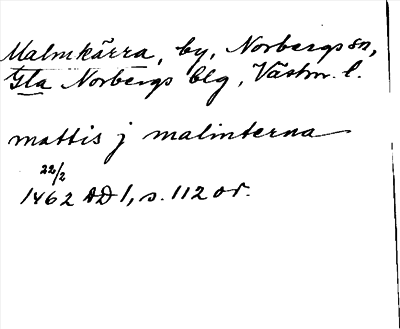 Malmkärra, by, Norbergs sn,
Gla Norbergs blg, Västm. l.
mattis j malmterna
22/2
1462 DD 1, s. 112 or.